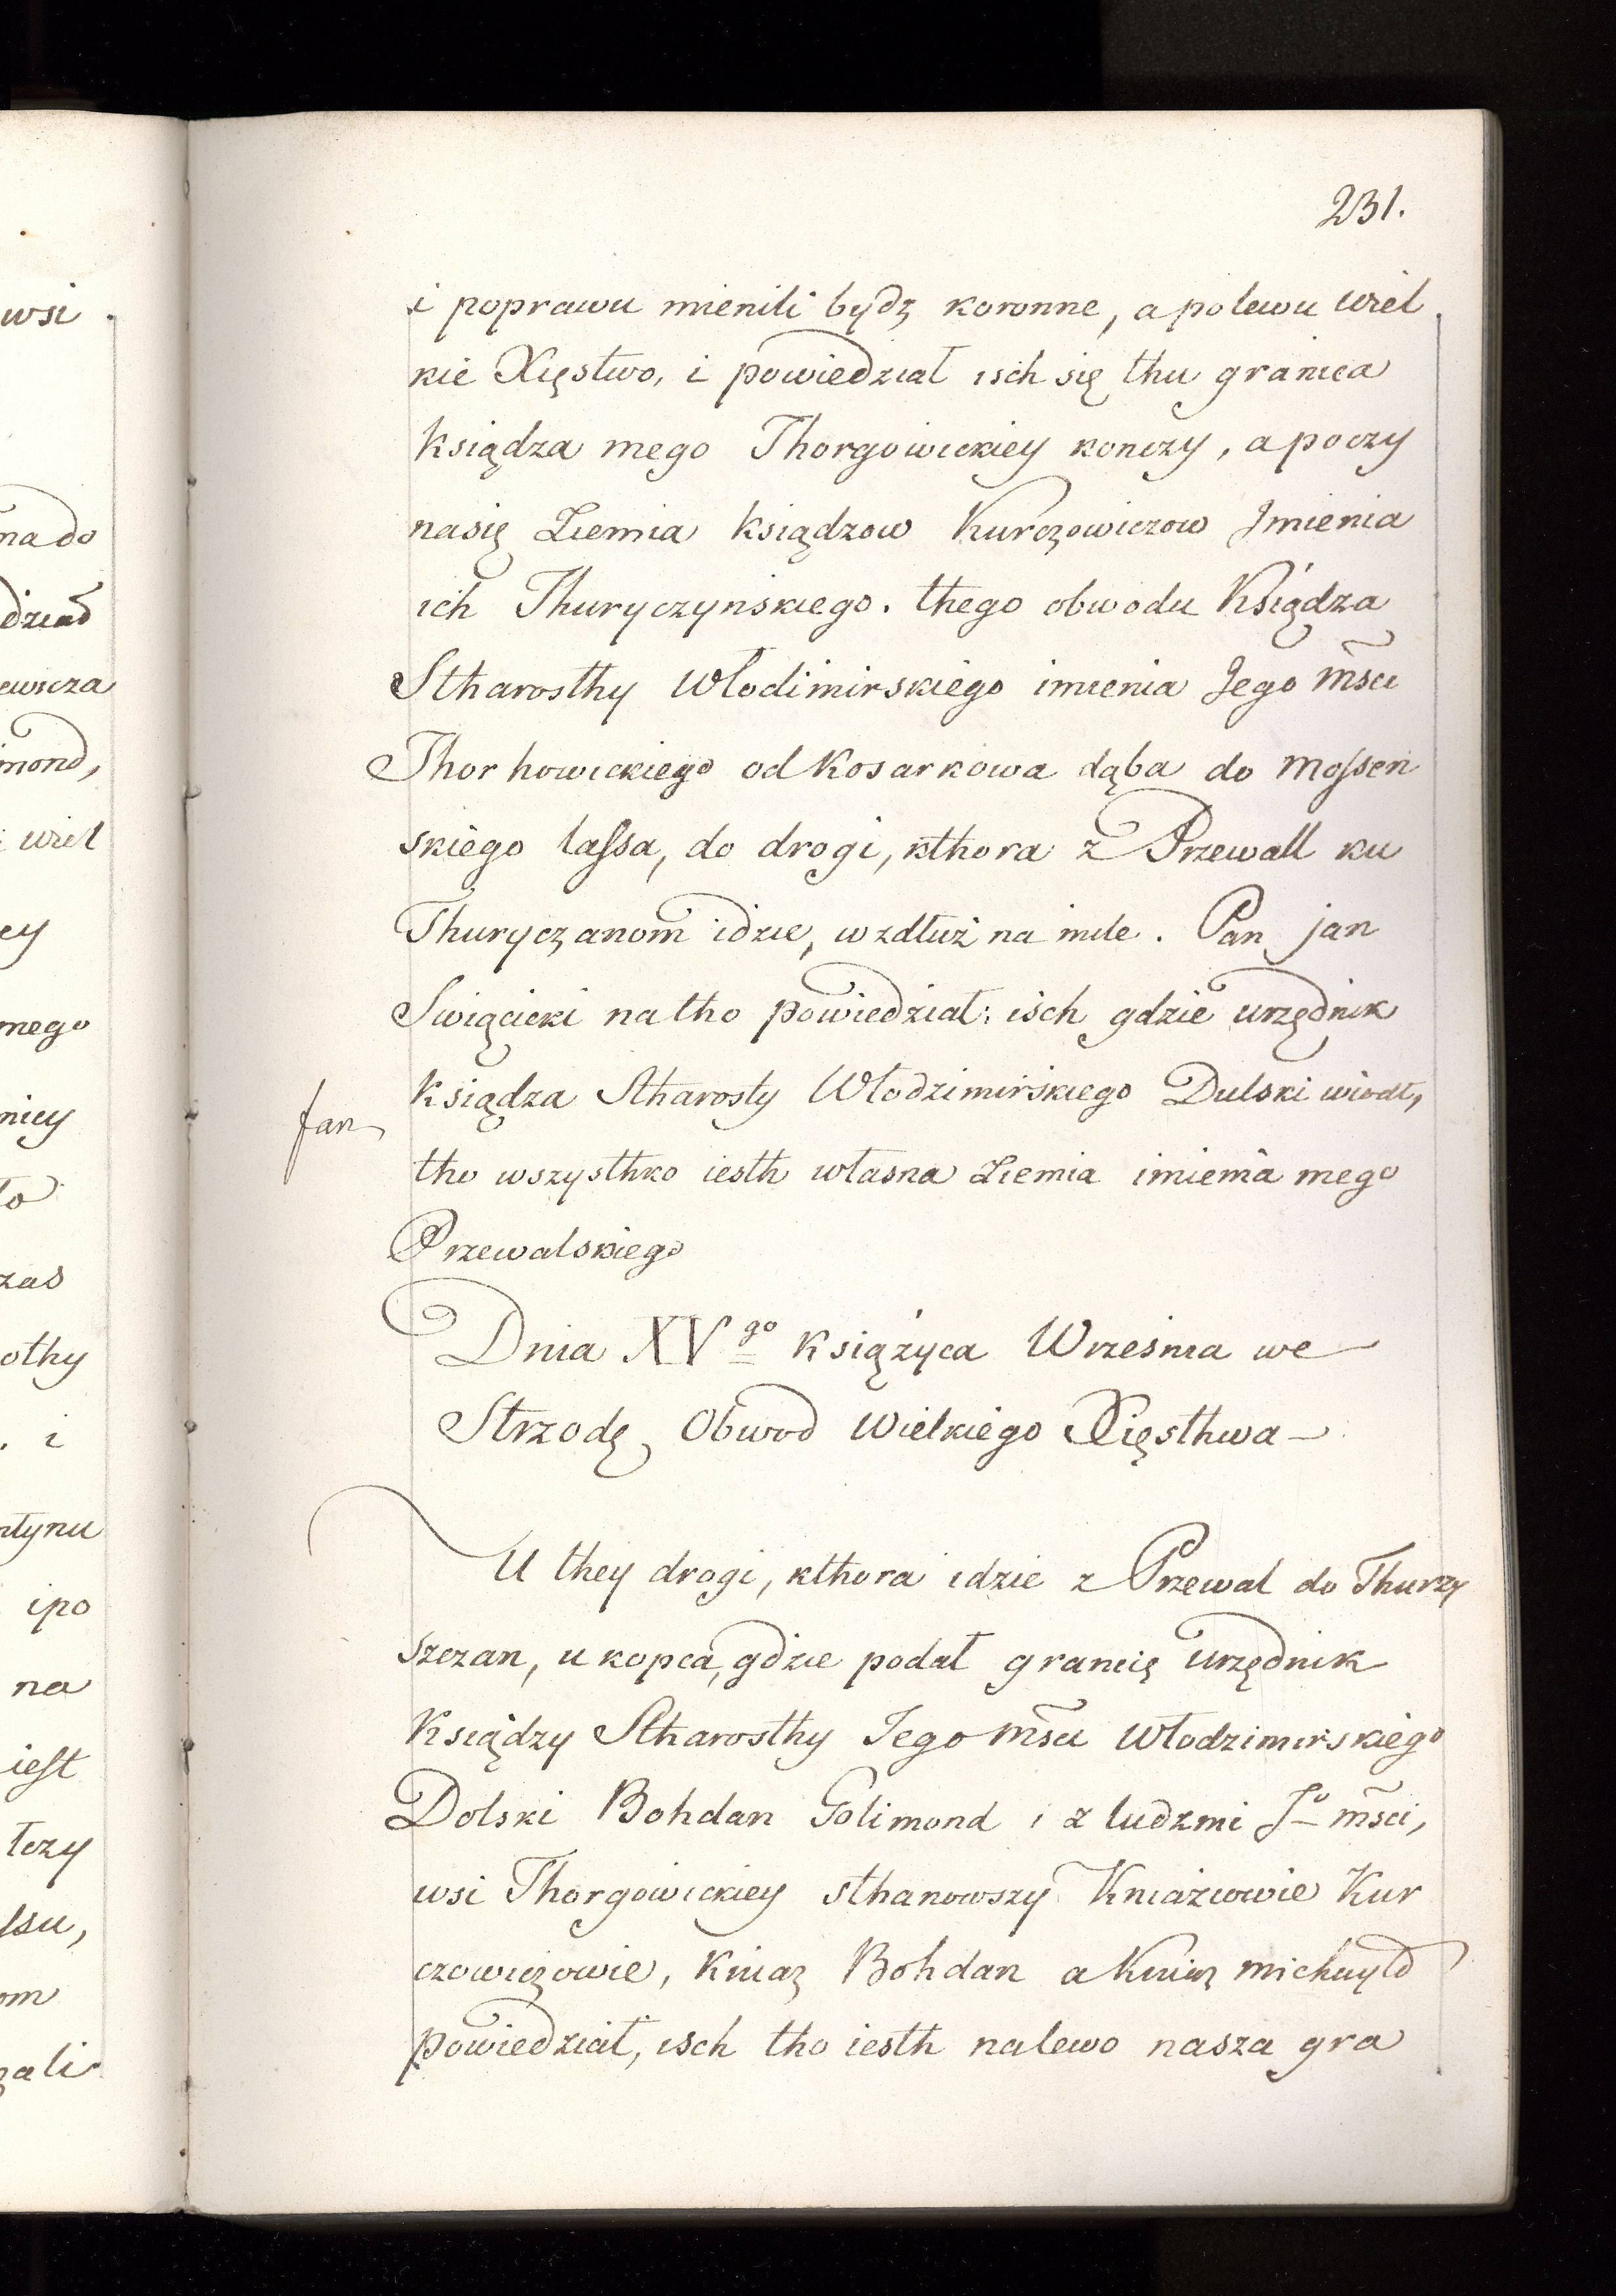 231.
i poprawu mienili bydz koronne, a polewu wiel
kie Xięstwo, i powiedział isch się thu granica
księdza mego Thorgowickiey konczy, a poczy
nasię Ziemia książow Kurczowiczow Jmienia
ich Thuryczynskiego. thego obwodu Księdza
Stharosthy Włodimirskiego imienia Jego m̃sci
Thorhowickiego od Kosarkowa dąba do mossen
skiego lassa, do drogi, kthora z Przewall ku
Thuryczanom idzie, wzdłuż na mile. Pan jan
Swięcicki na tho powiedział: isch gdzie urzędnik
księdza Stharosty Włodzimirskiego Dulski wiodł,
Jan
tho wszysthko iesth własna Ziemia imienia mego
Przewalskiego
Dnia XV go książyca Wrzesnia we
Strzodę Obwod Wielkiego Xięsthwa —
U they drogi, kthora idzie z Przewal do Thurzy
szczan, u kopca, gdzie podał granicę urzędnik
Książdzy Stharosthy Jego m̃sci Włodzimirskiego
Dolski Bohdan Golimond i z ludzmi Jo m̃sci,
wsi Thorgowickiey sthanowszy Kniaziowie Kur
czowiczowie, Kniaz Bohdan a Kniaz michayło
powiedział, isch tho iesth nalewo nasza gra
wsi
na do
dział
ewicza
imond,
i wiel
ey
mego
nicy
ło
zas
othy
. i
ntynu
ipo
na
iest
łczy
lsu,
om
zali